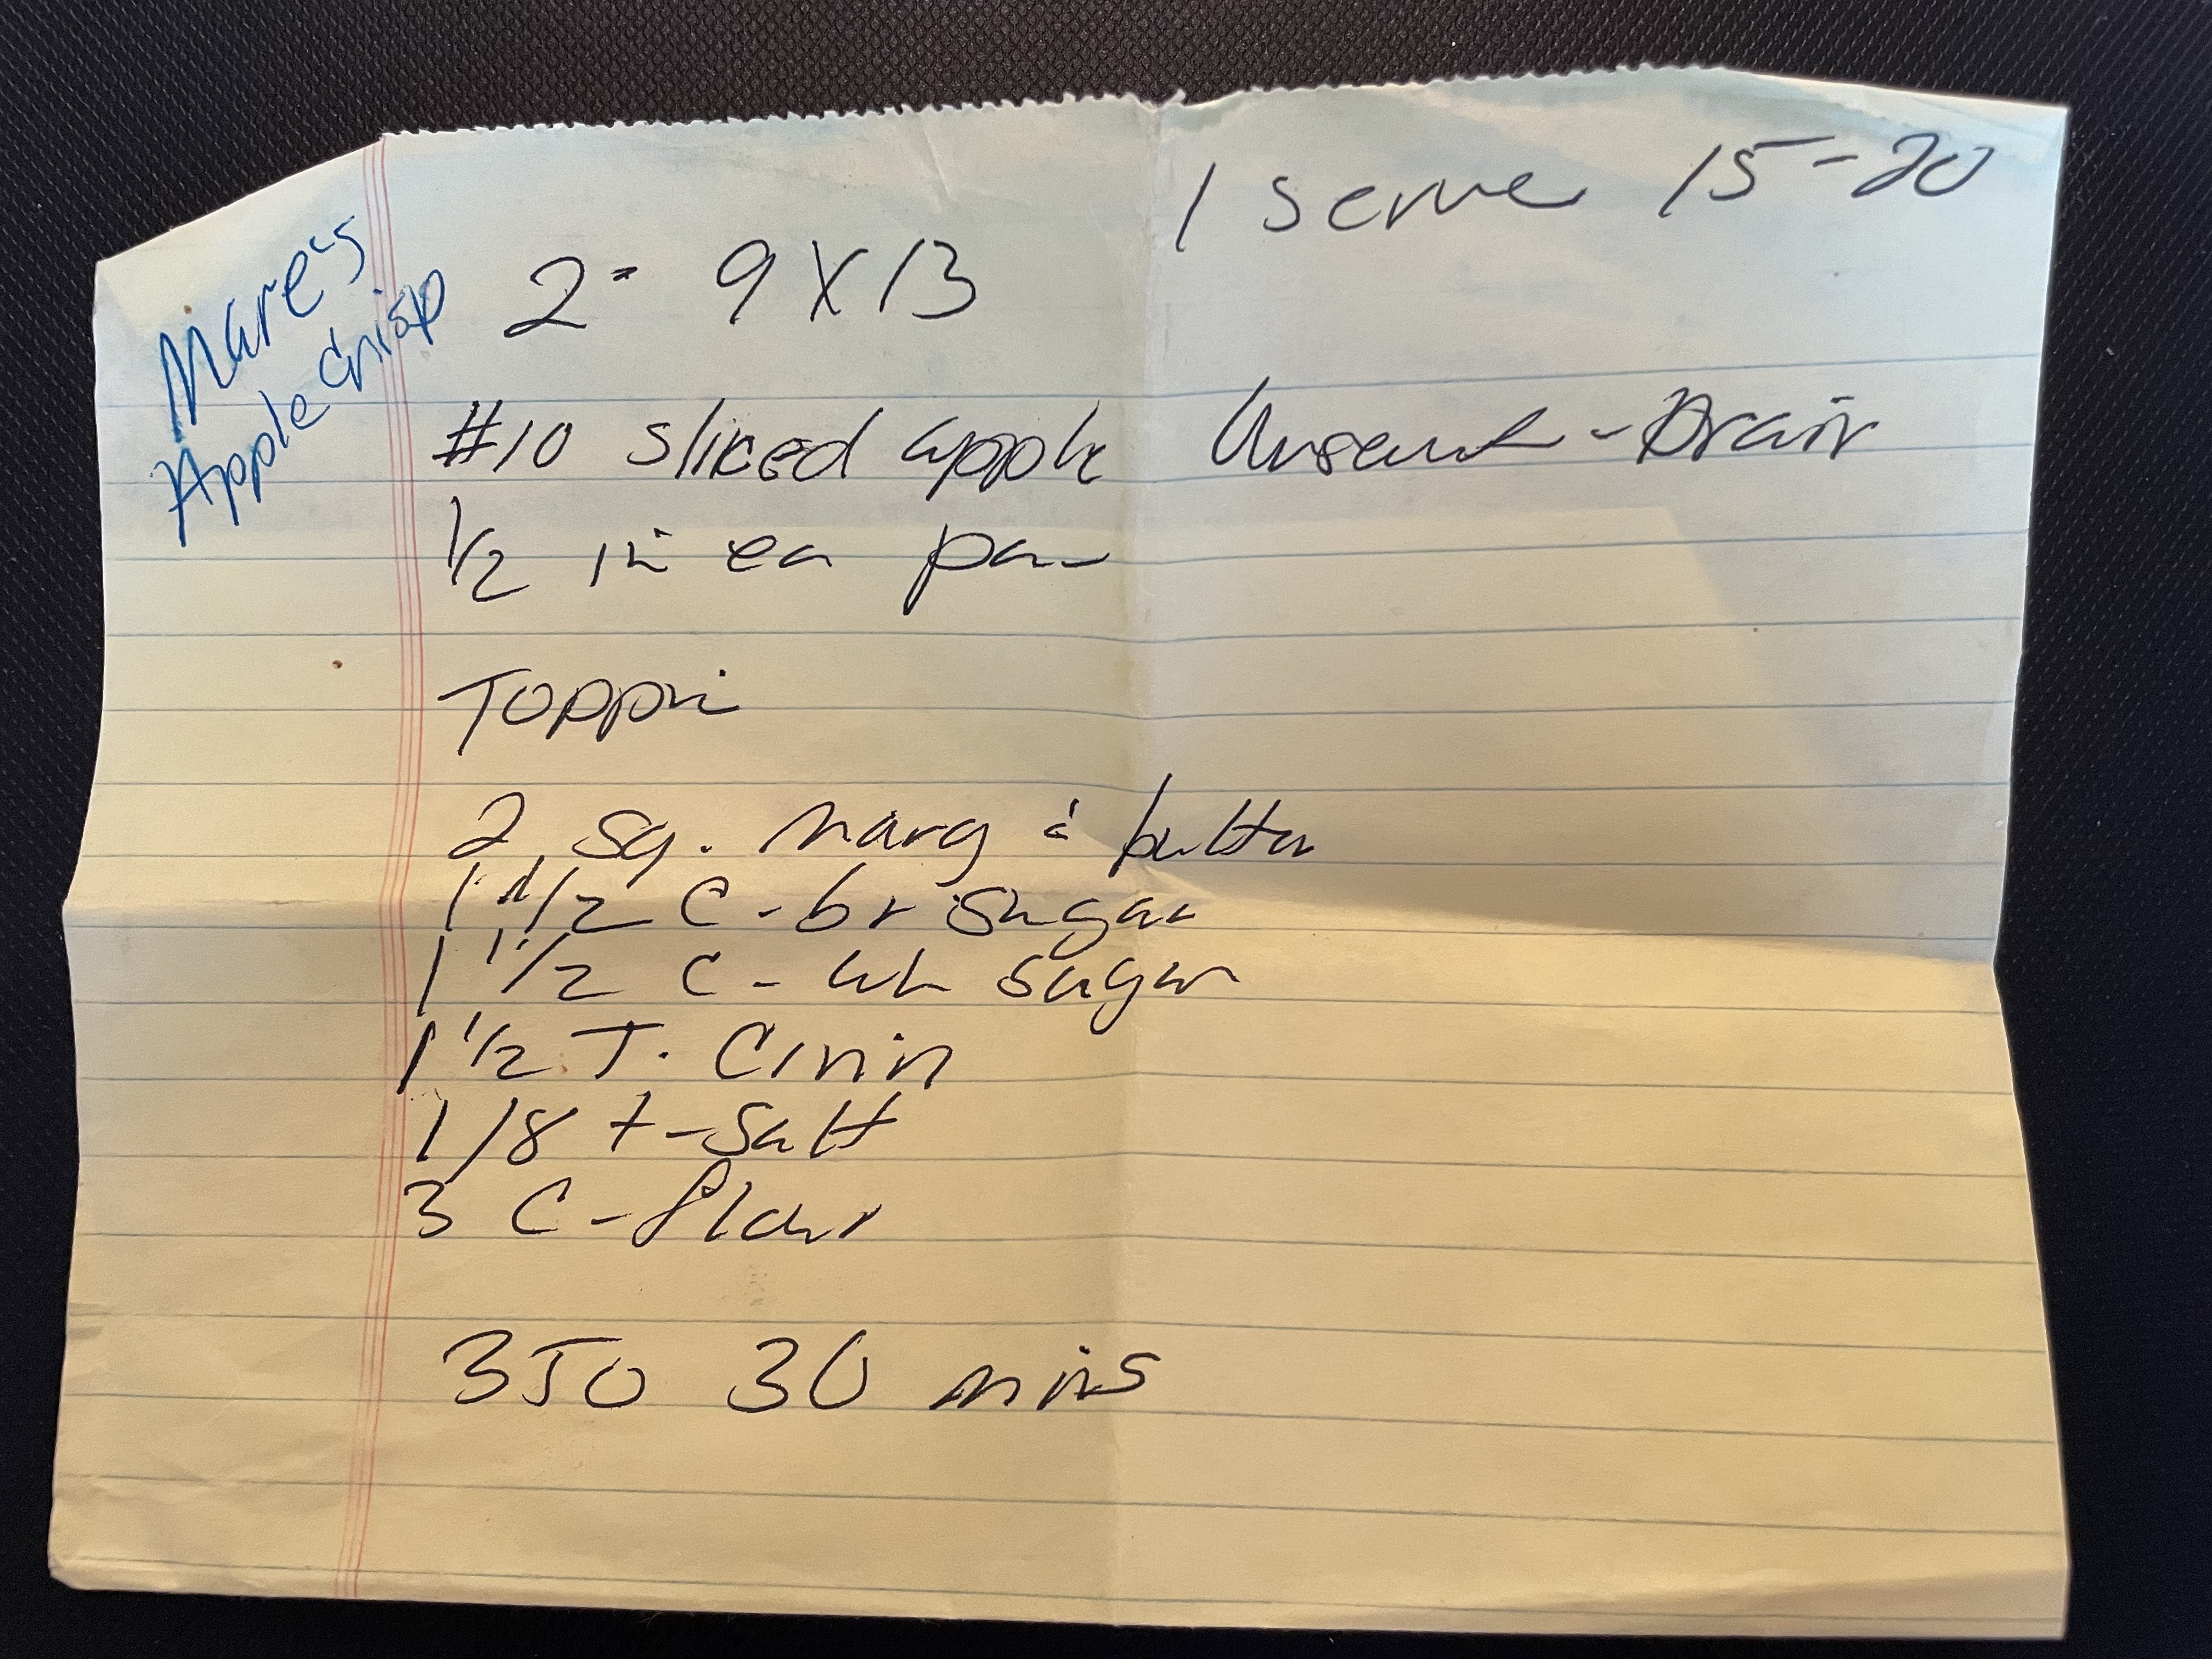 1 serve 15-20
Mare's
Apple Crisp
2- 9X13
#10 sliced apple Unsweet - Drain
1/2 in ea pan
Toppin
2 sq. marg & butter
1 1/2 C - br sugar
1 1/2 C - wh sugar
1 1/2 T. Cinin
1/8 t - Salt
3 C - flour
350 30 mins